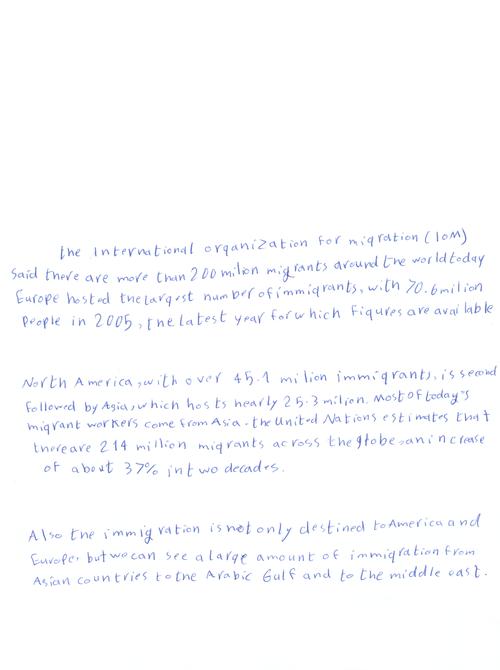 the International organization for migration (IOM)
Said there are more than 200 milion migrants around the world today
Europe hosted the largest number of immigrants, with 70.6 milion
People in 2005, the latest year for which figures are available
North America, with over 45.1 milion immigrants, is second
followed by Asia, which hosts nearly 25.3 milion. Most of today's
migrant workers come from Asia. the United Nations estimates that
there are 214 million migrants across the globe, an increase
of about 37% in two decades.
Also the immigration is not only destined to America and
Europe, but we can see a large amount of immigration from
Asian countries to the Arabic Gulf and to the middle east.